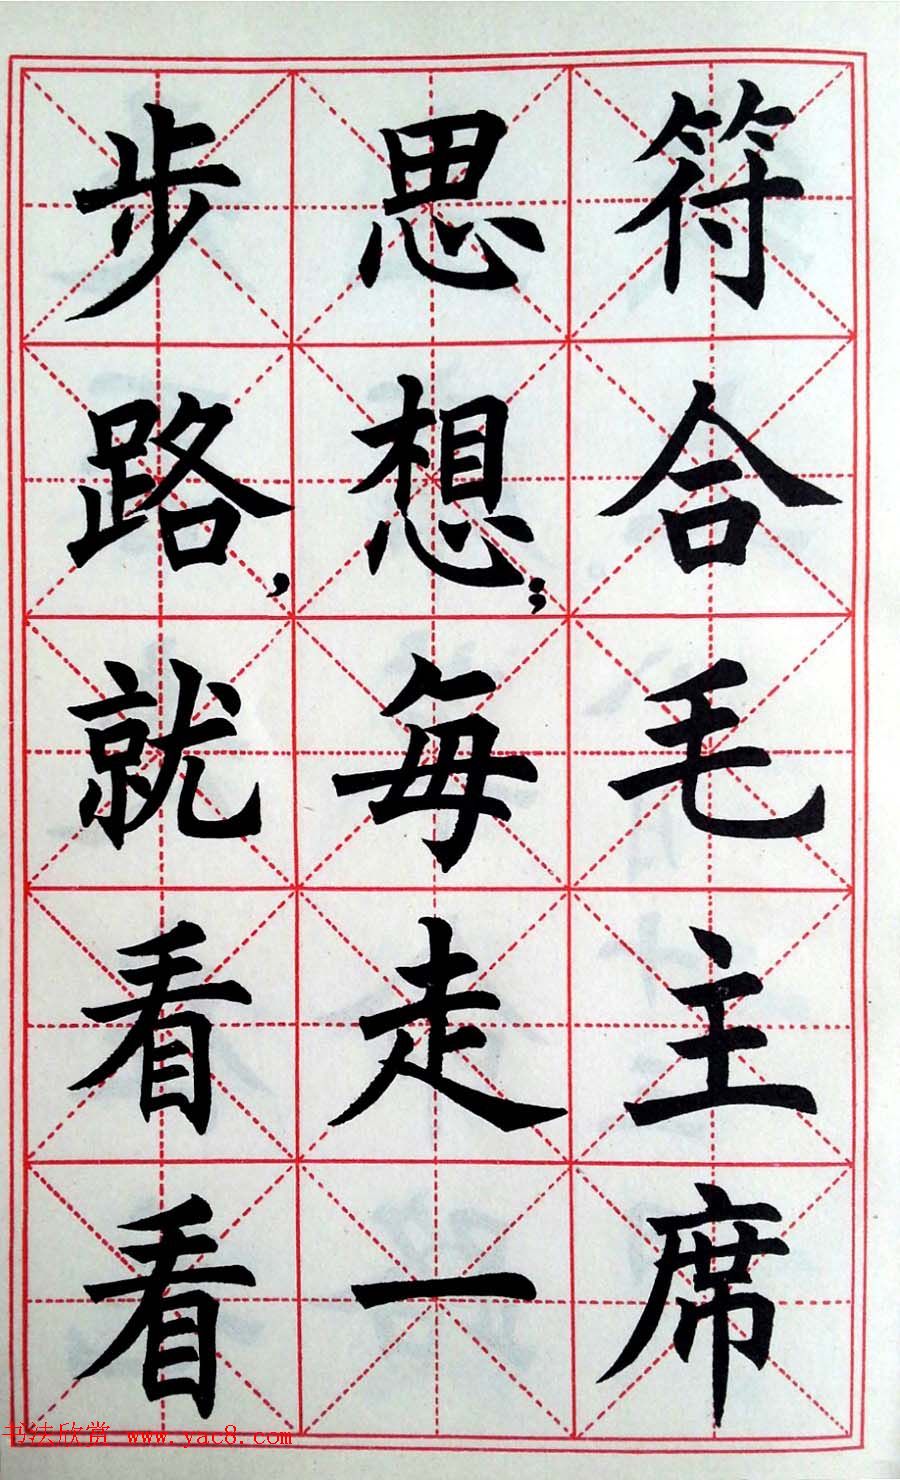 符合毛主席
思想；每走一
步路，就看看
书法欣赏 www.yac8.com